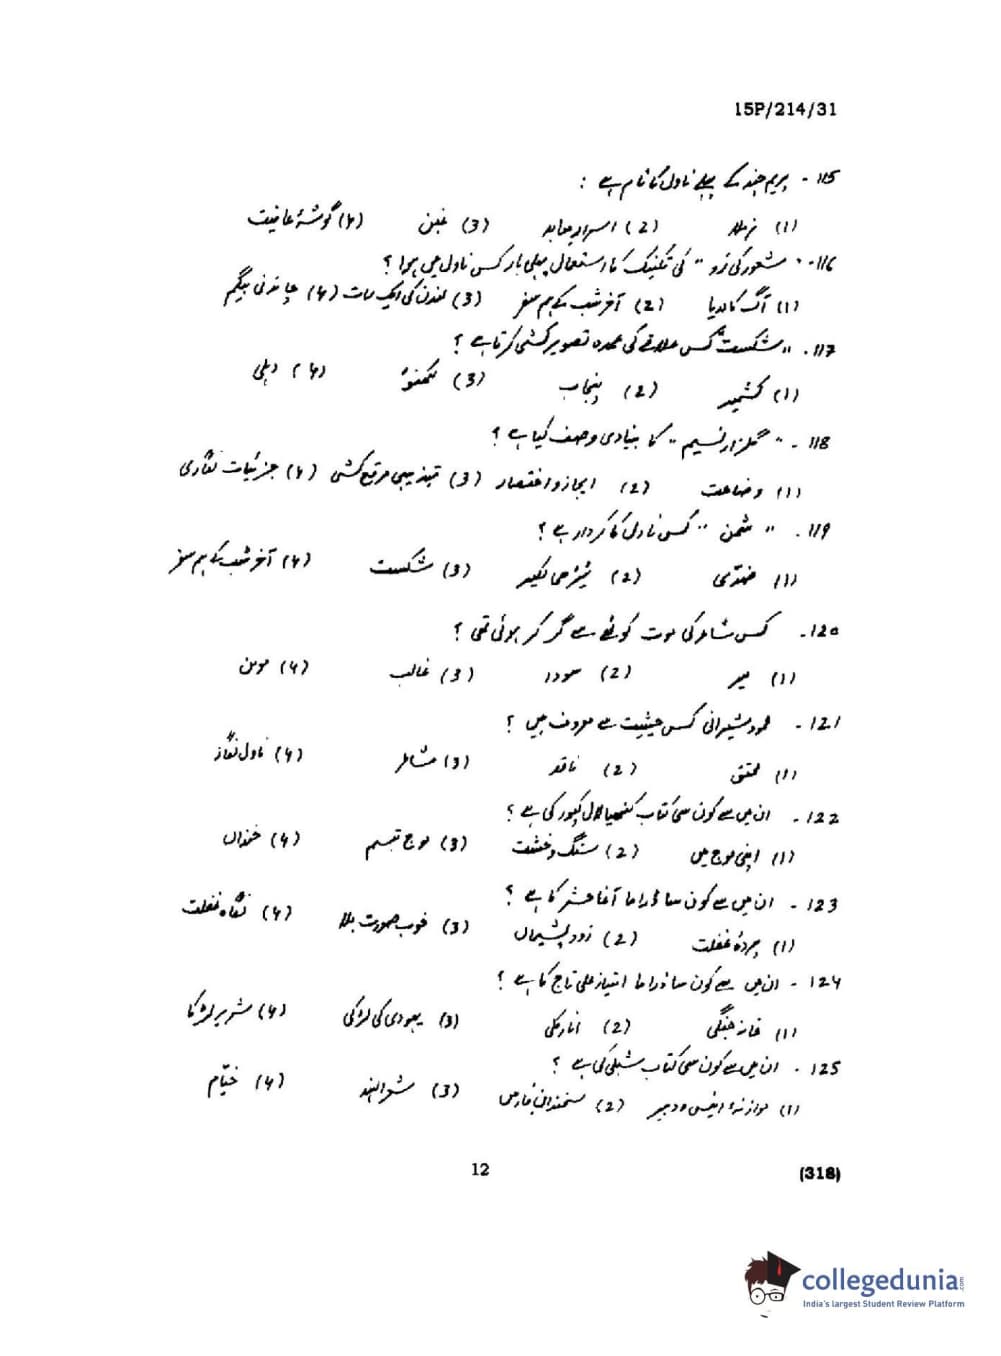 15P/214/31
115 - پریم چند کے پہلے ناول کا نام ہے :
(1) نرملا (2) اسرارِ معابد (3) غبن (4) گوشۂ عافیت
116 - "شعور کی رو" کی تکنیک کا استعمال پہلی بار کس ناول میں ہوا ؟
(1) آگ کا دریا (2) آخر شب کے ہم سفر (3) لندن کی ایک رات (4) چاندنی بیگم
117 - "شکست" کس علاقے کی عمدہ تصویر کشی کرتا ہے ؟
(1) کشمیر (2) پنجاب (3) لکھنؤ (4) دہلی
118 - "گلزار نسیم" کا بنیادی وصف کیا ہے ؟
(1) وضاحت (2) ایجاز و اختصار (3) تہذیبی مرقع کشی (4) جزئیات نگاری
119 - "شمن" کس ناول کا کردار ہے ؟
(1) ضدّی (2) ٹیڑھی لکیر (3) شکست (4) آخر شب کے ہم سفر
120 - کس شاعر کی موت کوٹھے سے گر کر ہوئی تھی ؟
(1) میر (2) سودا (3) غالب (4) مومن
121 - محمود شیرانی کس حیثیت سے معروف ہیں ؟
(1) محقق (2) ناقد (3) شاعر (4) ناول نگار
122 - ان میں سے کون سی کتاب کنھیا لال کپور کی ہے ؟
(1) اپنی موج میں (2) سنگ و خشت (3) موج تبسم (4) خنداں
123 - ان میں سے کون سا ڈراما آغا حشر کا ہے ؟
(1) پردۂ غفلت (2) زود پشیماں (3) خوب صورت بلا (4) نگاہ غفلت
124 - ان میں سے کون سا ڈراما امتیاز علی تاج کا ہے ؟
(1) خانہ جنگی (2) انارکلی (3) یہودی کی لڑکی (4) شریر لڑکا
125 - ان میں سے کون سی کتاب شبلی کی ہے ؟
(1) موازنۂ انیس و دبیر (2) سخندان فارس (3) شعر الہند (4) خیّام
12
(318)
collegedunia.com
India's largest Student Review Platform